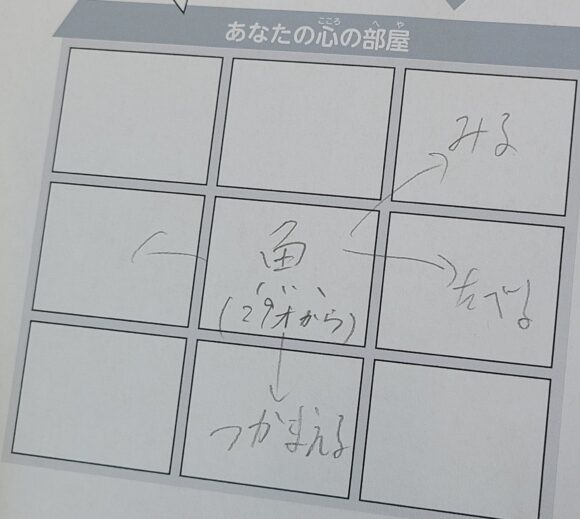 あなたの心の部屋
こころ
へや
みる
魚
(29才から)
たべる
つかまえる